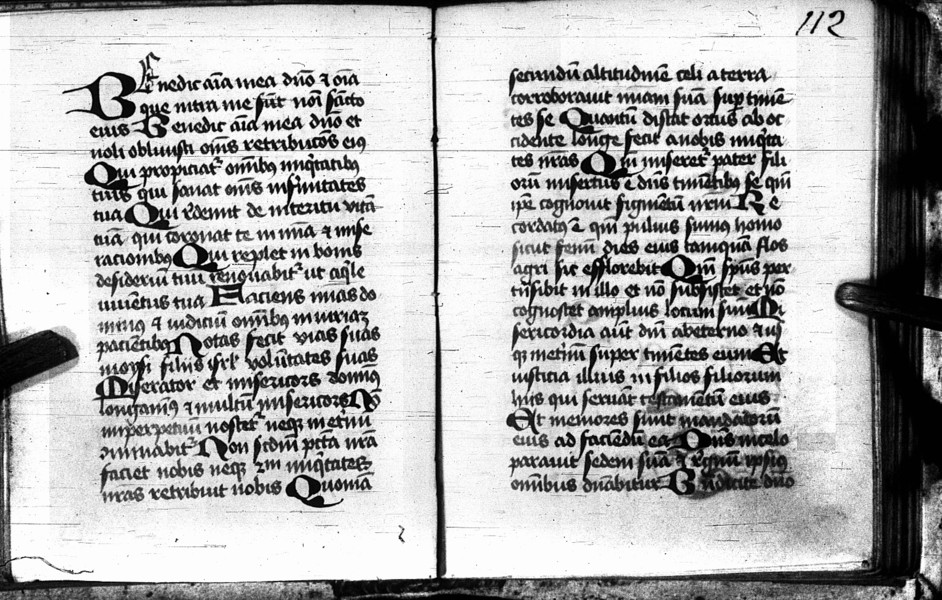 Benedic aīa mea dn̄o ⁊ oīa
que intra me sūt noī sācto
eius Benedic aīa mea dn̄o et
noli oblivisci om̄s retributōes eiꝰ
Qui propiciatᷣ om̄ibꝰ iniqͥtatibꝰ
tuis qui sanat om̄s infirmitates
tua Qui redemit de interitu vitā
tuā qui coronat te in mīa ⁊ mise
racionibꝰ Qui replet in bonis
desideriū tuū renovabitᷣ ut aqͥle
iuventus tua Faciens mīas do
minꝰ ⁊ iudiciū om̄ibꝰ iniuriaz
pacientibꝰ Notas fecit vias suas
moysi filiis isrl̄ volūtates suas
Miserator et misericors dominꝰ
longanimꝰ ⁊ multū misericors Nō
imperpetuū nec neqꝫ in eternū
ꝯminabitᷣ Non scd̄m pctā nr̄a
faciet nobis neqꝫ scd̄m iniqͥtates
nr̄as retribuit nobis Quoniā
112
secundū altitudinē celi a terra
corroboravit mīam suā sup̄ timēn
tes se Quantū distat ortus ab oc
cidente longe fecit a nobis iniqͥta
tes nr̄as Qm̄ miseretᷣ pater fili
orū misertus ē dn̄s timētibꝰ se qm̄
ip̄e cognovit figmētū nr̄m Re
cordatꝰ ē qm̄ pulvis sumꝰ homo
sicut fenū dies eius tamquā flos
agri sic efflorebit Qm̄ sp̄us per
trāsibit in illo et nō subsistet et nō
cognoscet amplius locum suū Mi
sericordia aut̄ dn̄i ab eterno ⁊ usꝫ
qꝫ in et̄nū super timētes eum Et
iusticia illius in filios filiorum
hiis qui servāt testamētū eius
Et memores sunt mandatorū
eius ad faciendū ea Dn̄s in celo
paravit sedem suā ⁊ regnū ipsiꝰ
om̄ibus dn̄abitur Bn̄dicite dn̄o